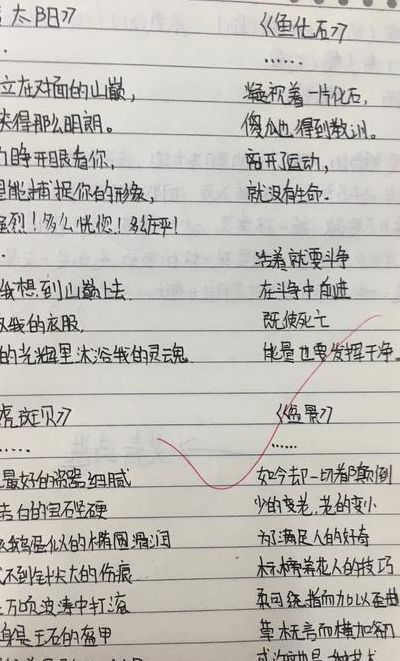 太阳》
立在对面的山巅,
来得那么明朗。
睁开眼看你,
能捕捉你的形象,
强烈!多么恍惚!多么庄严!
我想到山巅上去.
的光辉里沐浴我的灵魂.
虎斑贝》
......
最好的瓷器细腻
洁白的宝石坚硬
鹅蛋似的椭圆滑润
不到针尖大的伤痕
万顷波涛中打滚
身是玉石的盔甲
《鱼化石》
......
凝视着一片化石,
傻瓜也得到教训。
离开了运动,
就没有生命.
活着就要斗争
在斗争中前进
既使死亡
能量也要发挥干净.
《盆景》
......
如今却一切都颠倒
少的变老,老的变小
为了满足人的好奇
标榜养花人的技巧
柔可绕指而加以歪曲
草木无言而横加